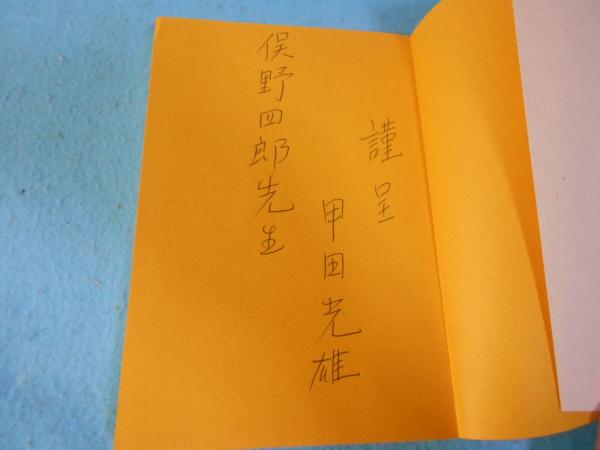 謹呈
甲田光雄
俣野四郎先生